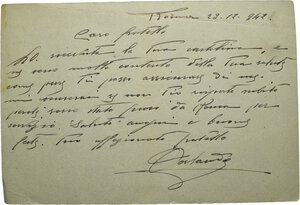 Roma 22.12.942.
Caro fratello
Ho ricevuto la tua cartolina, e
sono molto contento della tua salute
così pure ti posso assicurare di me.
non ti rispondo subito
sono stato fuori da Roma per
servizio. Saluti auguri e buone
feste. tuo affezionato fratello
Orlando